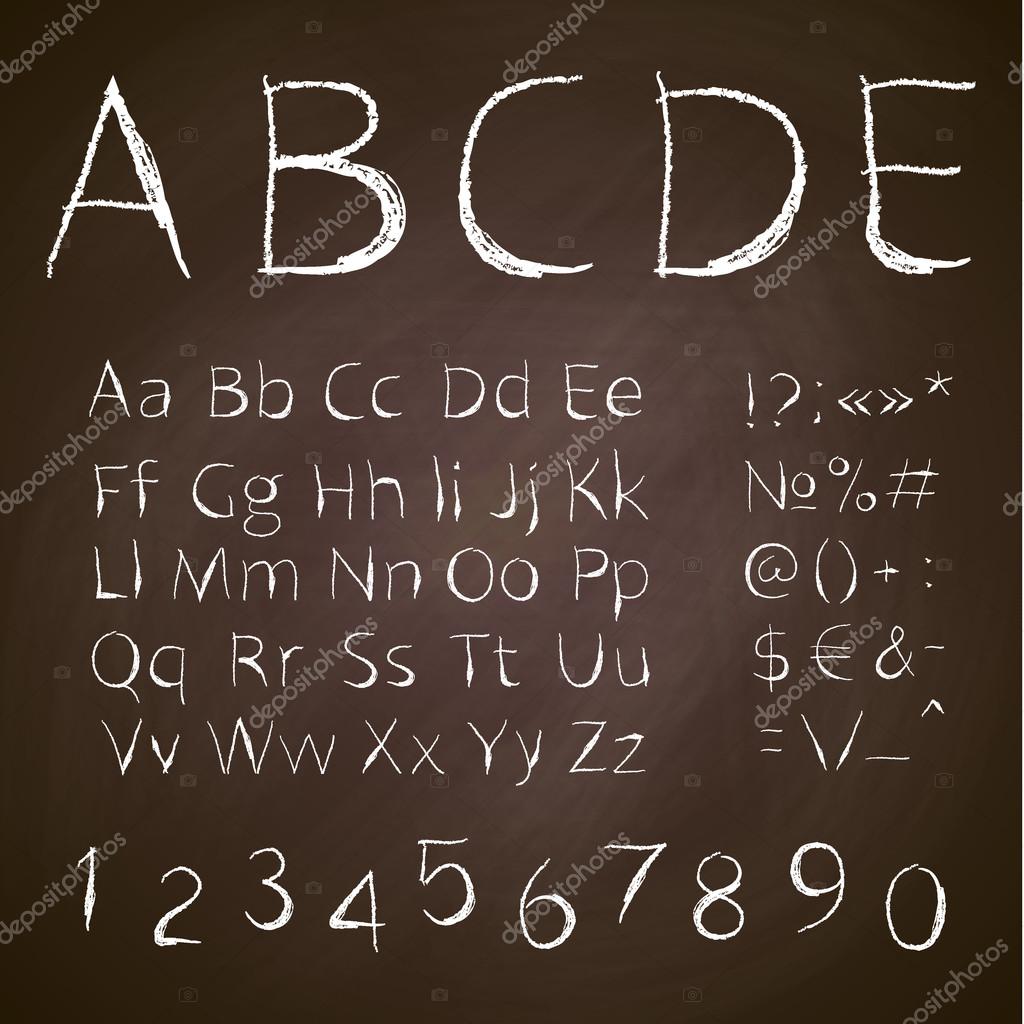 A B C D E
Aa Bb Cc Dd Ee
!?;«»*
Ff Gg Hh Ii Jj Kk
№%#
Ll Mm Nn Oo Pp
@()+:
Qq Rr Ss Tt Uu
$€&-
Vv Ww Xx Yy Zz
=\/_^
1 2 3 4 5 6 7 8 9 0
depositphotos